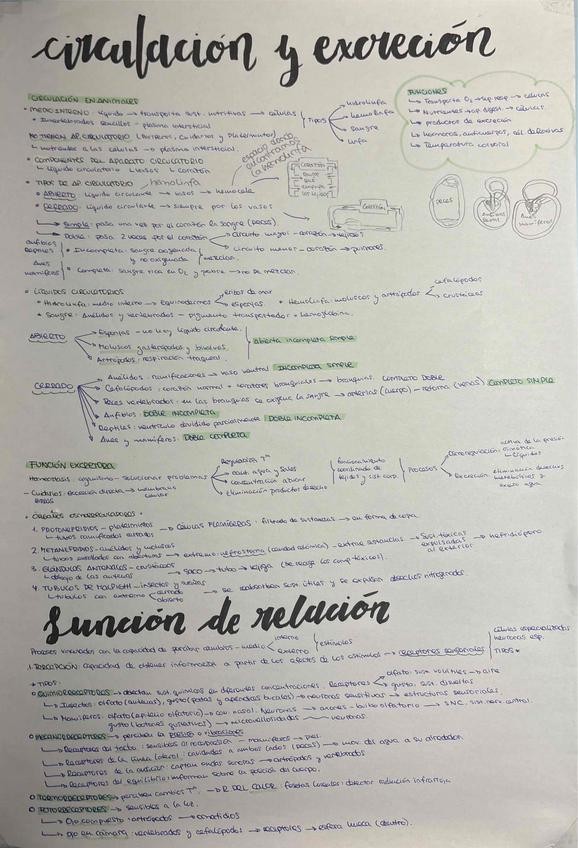 circulación y excreción
CIRCULACIÓN EN ANIMALES
• MEDIO INTERNO: líquido → transporta sust. nutritivas → células
• Invertebrados sencillos - plasma intersticial
TIPOS
hidrolinfa
hemolinfa
sangre
linfa
FUNCIONES
→ Transporta O₂ → ap. resp → células
→ Nutrientes → ap. digest. → células.
→ productos de excreción
→ hormonas, anticuerpos,
→ Temperatura corporal
NO TIENEN AP. CIRCULATORIO (Poríferos, Cnidarios y Platelmintos)
↳ nutrientes a las células → plasma intersticial
• COMPONENTES DEL APARATO CIRCULATORIO
↳ líquido circulatorio vasos corazón
• TIPOS DE AP. CIRCULATORIO
hemolinfa
ABIERTO: líquido circulante → vasos → hemocele
CERRADO: líquido circulante → siempre por los vasos
Simple: pasa una vez por el corazón la sangre (peces)
Doble: pasa 2 veces por el corazón
circuito mayor - corazón → tejidos
circuito menor - corazón → pulmones.
Anfibios
Reptiles
• Incompleta: sangre oxigenada y no oxigenada
mezclan.
Aves
mamíferos
• Completa: sangre rica en O₂ y pobre → no se mezclan.
peces
• LÍQUIDOS CIRCULATORIOS
• Hidrolinfa: medio interno → Equinodermos
erizos de mar
esponjas
• Hemolinfa: moluscos y artrópodos
cefalópodos
crustáceos
• Sangre: Anélidos y vertebrados - pigmento transportador • hemoglobina.
ABIERTO
Esponjas - no hay líquido circulante.
Moluscos gasterópodos y bivalvos.
Artrópodos: respiración traqueal.
Abierta incompleta simple
CERRADO
Anélidos: ramificaciones → vaso ventral INCOMPLETA SIMPLE
Cefalópodos: corazón normal + corazones branquiales → branquias. COMPLETO DOBLE
Peces vertebrados: en las branquias se oxigena la sangre → arterias (cuerpo) - retorna (venas). COMPLETO SIMPLE
Anfibios: DOBLE INCOMPLETA
Reptiles: ventrículo dividido parcialmente DOBLE INCOMPLETA
Aves y mamíferos: DOBLE COMPLETA
FUNCIÓN EXCRETORA
Homeostasis: organismo - solucionar problemas
Regulación Tª
cant. agua y sales
concentración azúcar
eliminación producto desecho
funcionamiento coordinado de tejidos y
Procesos
Osmorregulación
Excreción
eliminación desechos metabólicos y exceso agua
- Cnidarios: excreción directa →
• ÓRGANOS OSMORREGULADORES
1. PROTONEFRIDIOS - platelmintos → CÉLULAS FLAMÍGERAS: filtrado de sustancias → en forma de copa.
↳ tubos ramificados cerrados
2. METANEFRIDIOS - anélidos y moluscos
↳ tubos enrollados con aberturas → extremo: nefrostoma (cavidad celómica) - extrae sustancias → sust. tóxicas expulsadas al exterior → nefridióporo
3. GLÁNDULAS ANTENALES - crustáceos
↳ debajo de las antenas → SACO → tubo → vejiga
4. TUBULOS DE MALPIGHI - insectos y
↳ túbulos con extremo
cerrado
abierto
→ se reabsorben sust. útiles y se expulsan desechos nitrogenados.
función de relación
Procesos vinculados con la capacidad de percibir cambios - medio
interno
externo
estímulos
1. PERCEPCIÓN: capacidad de obtener información a partir de los efectos de los estímulos → receptores sensoriales
células especializadas
neuronas esp.
TIPOS
• TIPOS:
QUIMIORRECEPTORES → detectan sust. químicas en diferentes concentraciones. Receptores
olfato: sust. volátiles → aire
gusto: sust. disueltas
↳ Insectos: olfato (antenas), gusto (patas y apéndices bucales) → neuronas sensitivas → estructuras sensoriales.
↳ Mamíferos: olfato (epitelio olfatorio) → cav. nasal. Neuronas → axones - bulbo olfatorio → SNC, sist. nerv. central.
gusto (botones gustativos) → microvellosidades neuronas
MECANORRECEPTORES → perciben la presión o vibraciones
↳ Receptores del tacto: sensibles - mamíferos → piel.
↳ Receptores de la línea lateral: cavidades a ambos lados (peces) → mov. del agua a su alrededor.
↳ Receptores de la audición: captan ondas sonoras → artrópodos y vertebrados
↳ Receptores del equilibrio: informan sobre la posición del cuerpo.
TERMORRECEPTORES → perciben cambios Tª. → R. DEL CALOR: fosetas loreales: detectar radiación infrarroja.
FOTORRECEPTORES → sensibles a la luz.
↳ Ojo compuesto: artrópodos → omatidios
↳ Ojo en cámara: vertebrados y cefalópodos → receptores → esfera hueca (dentro).